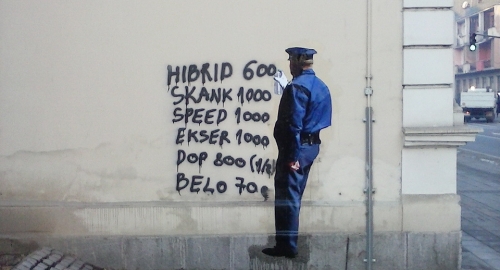 HIBRID 600
SKANK 1000
SPEED 1000
EKSER 1000
DOP 800 (1/2
BELO 70